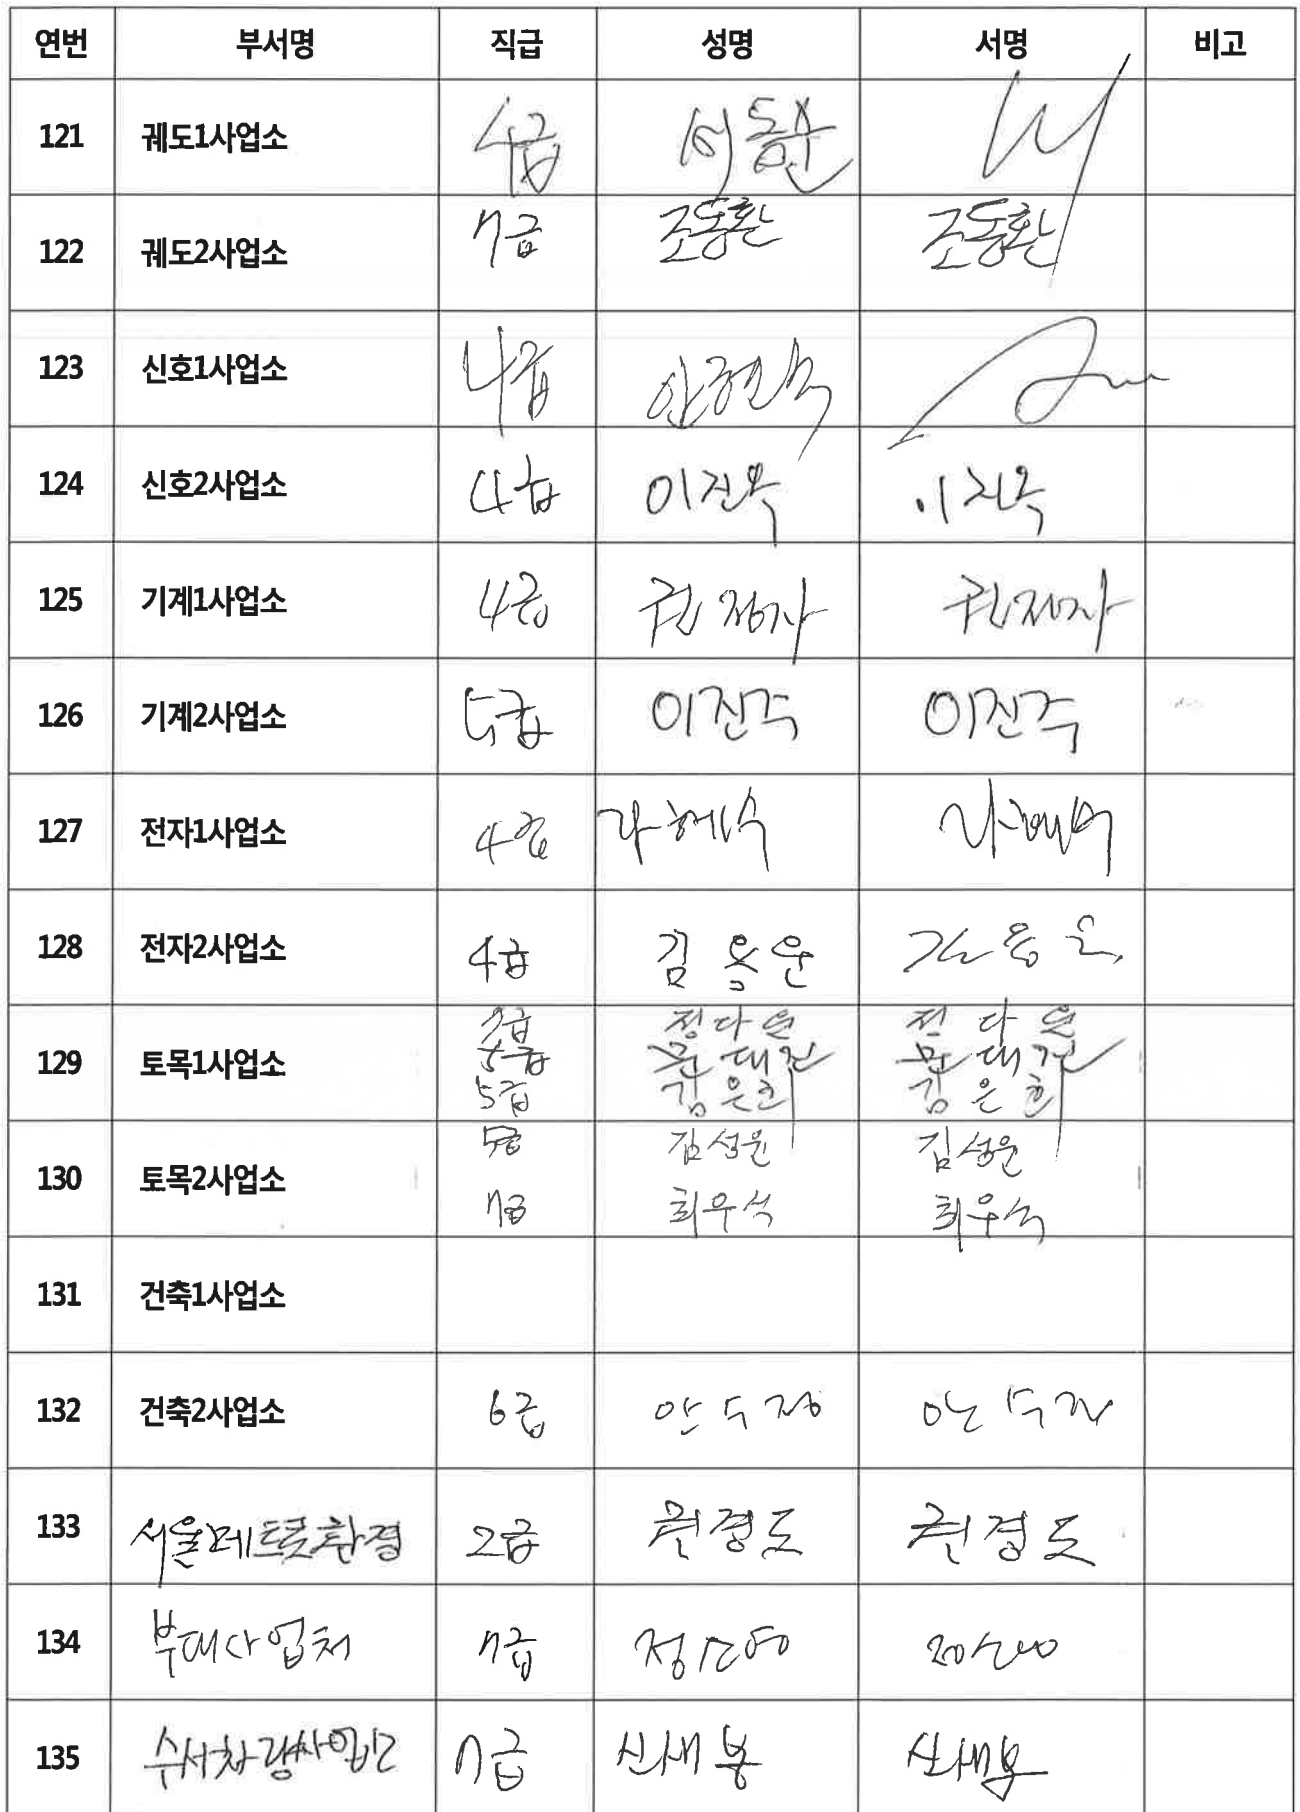 연번 부서명 직급 성명 서명 비고
121 궤도1사업소 4급
122 궤도2사업소 7급 조동환 조동환
123 신호1사업소 4급
124 신호2사업소 4급 이진욱
125 기계1사업소 4급 권정자 권정자
126 기계2사업소 5급 이진주 이진주
127 전자1사업소 4급
128 전자2사업소 4급 김용운
129 토목1사업소 7급 정다운 정다운
5급
5급 김은희 김은희
130 토목2사업소 5급 김성윤 김성윤
7급 최우석 최우석
131 건축1사업소
132 건축2사업소 6급 안수정
133 서울메트로환경 2급 권경도 권경도
134 부대사업처 7급
135 수서차량사업소 7급 신새봄 신새봄